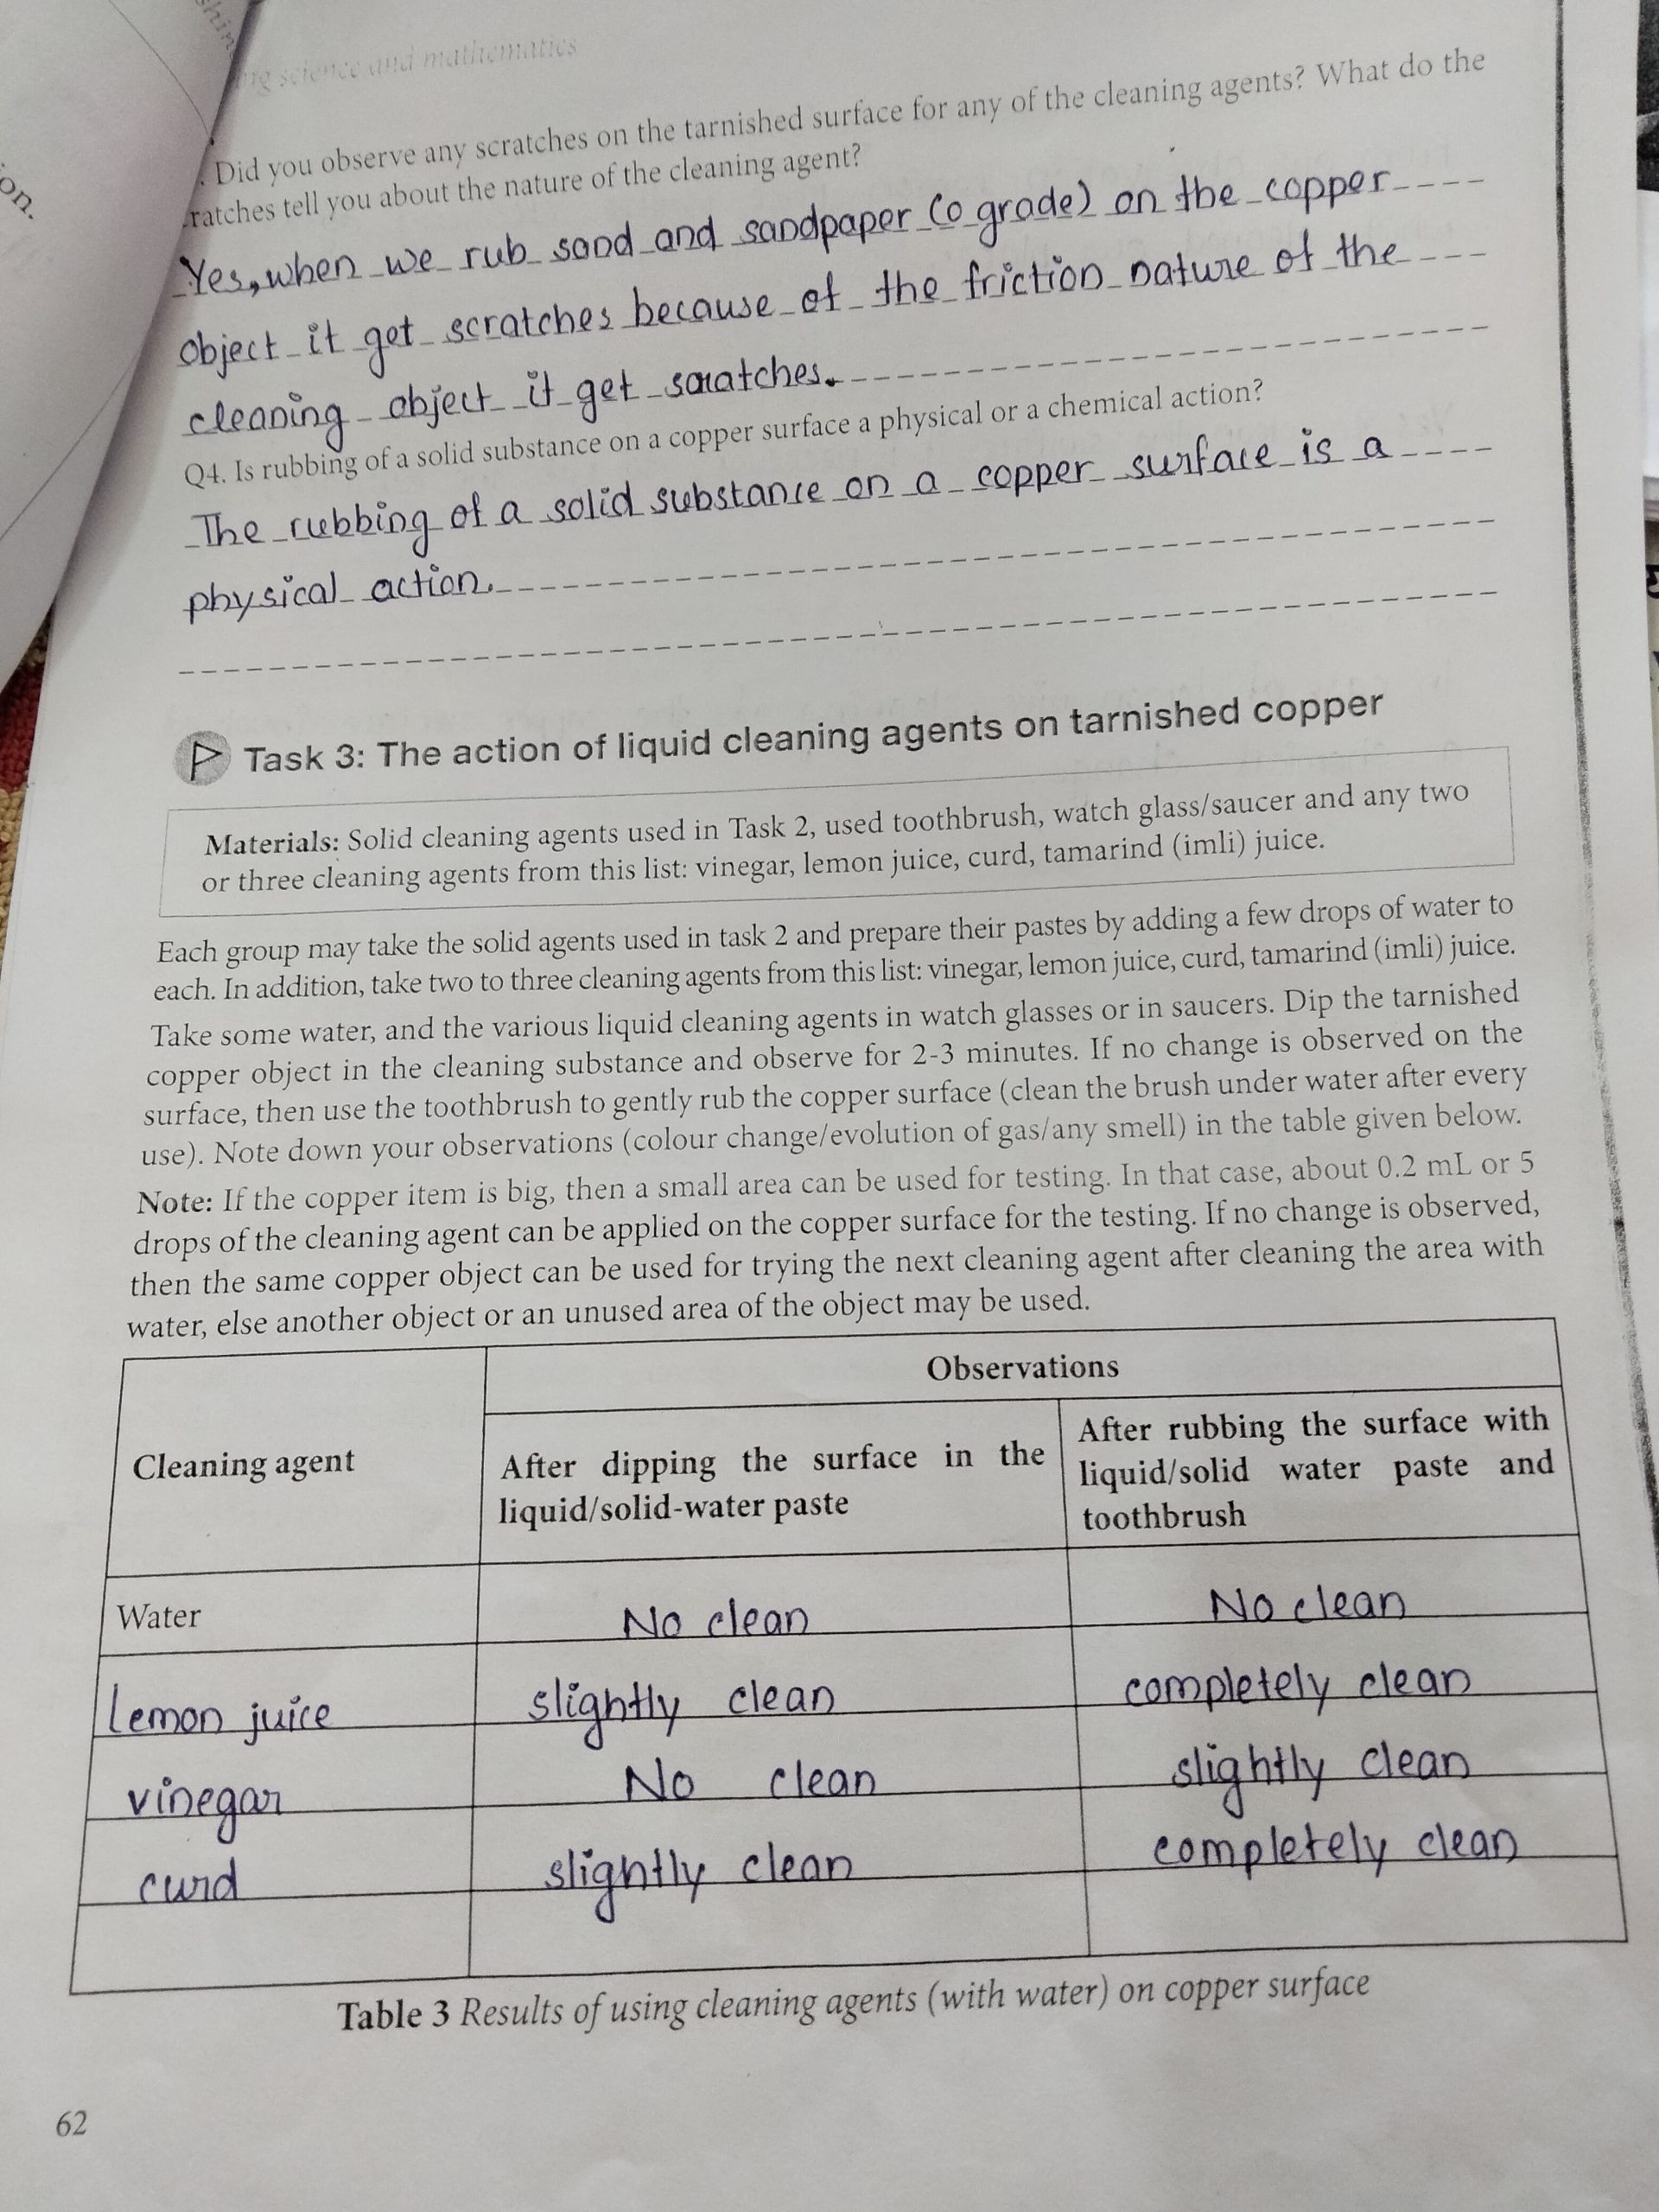 science and mathematics
Did you observe any scratches on the tarnished surface for any of the cleaning agents? What do the
ratches tell you about the nature of the cleaning agent?
Yes, when we rub sand and sandpaper (o grade) on the copper
object it get scratches because of the friction nature of the
cleaning object it get scratches.
Q4. Is rubbing of a solid substance on a copper surface a physical or a chemical action?
The rubbing of a solid substance on a copper surface is a
physical action.
Task 3: The action of liquid cleaning agents on tarnished copper
Materials: Solid cleaning agents used in Task 2, used toothbrush, watch glass/saucer and any two
or three cleaning agents from this list: vinegar, lemon juice, curd, tamarind (imli) juice.
Each group may take the solid agents used in task 2 and prepare their pastes by adding a few drops of water to
each. In addition, take two to three cleaning agents from this list: vinegar, lemon juice, curd, tamarind (imli) juice.
Take some water, and the various liquid cleaning agents in watch glasses or in saucers. Dip the tarnished
copper object in the cleaning substance and observe for 2-3 minutes. If no change is observed on the
surface, then use the toothbrush to gently rub the copper surface (clean the brush under water after every
use). Note down your observations (colour change/evolution of gas/any smell) in the table given below.
Note: If the copper item is big, then a small area can be used for testing. In that case, about 0.2 mL or 5
drops of the cleaning agent can be applied on the copper surface for the testing. If no change is observed,
then the same copper object can be used for trying the next cleaning agent after cleaning the area with
water, else another object or an unused area of the object may be used.
Observations
Cleaning agent
After dipping the surface in the
liquid/solid-water paste
After rubbing the surface with
liquid/solid water paste and
toothbrush
Water No clean No clean
lemon juice slightly clean completely clean
vinegar No clean slightly clean
curd slightly clean completely clean
Table 3 Results of using cleaning agents (with water) on copper surface
62